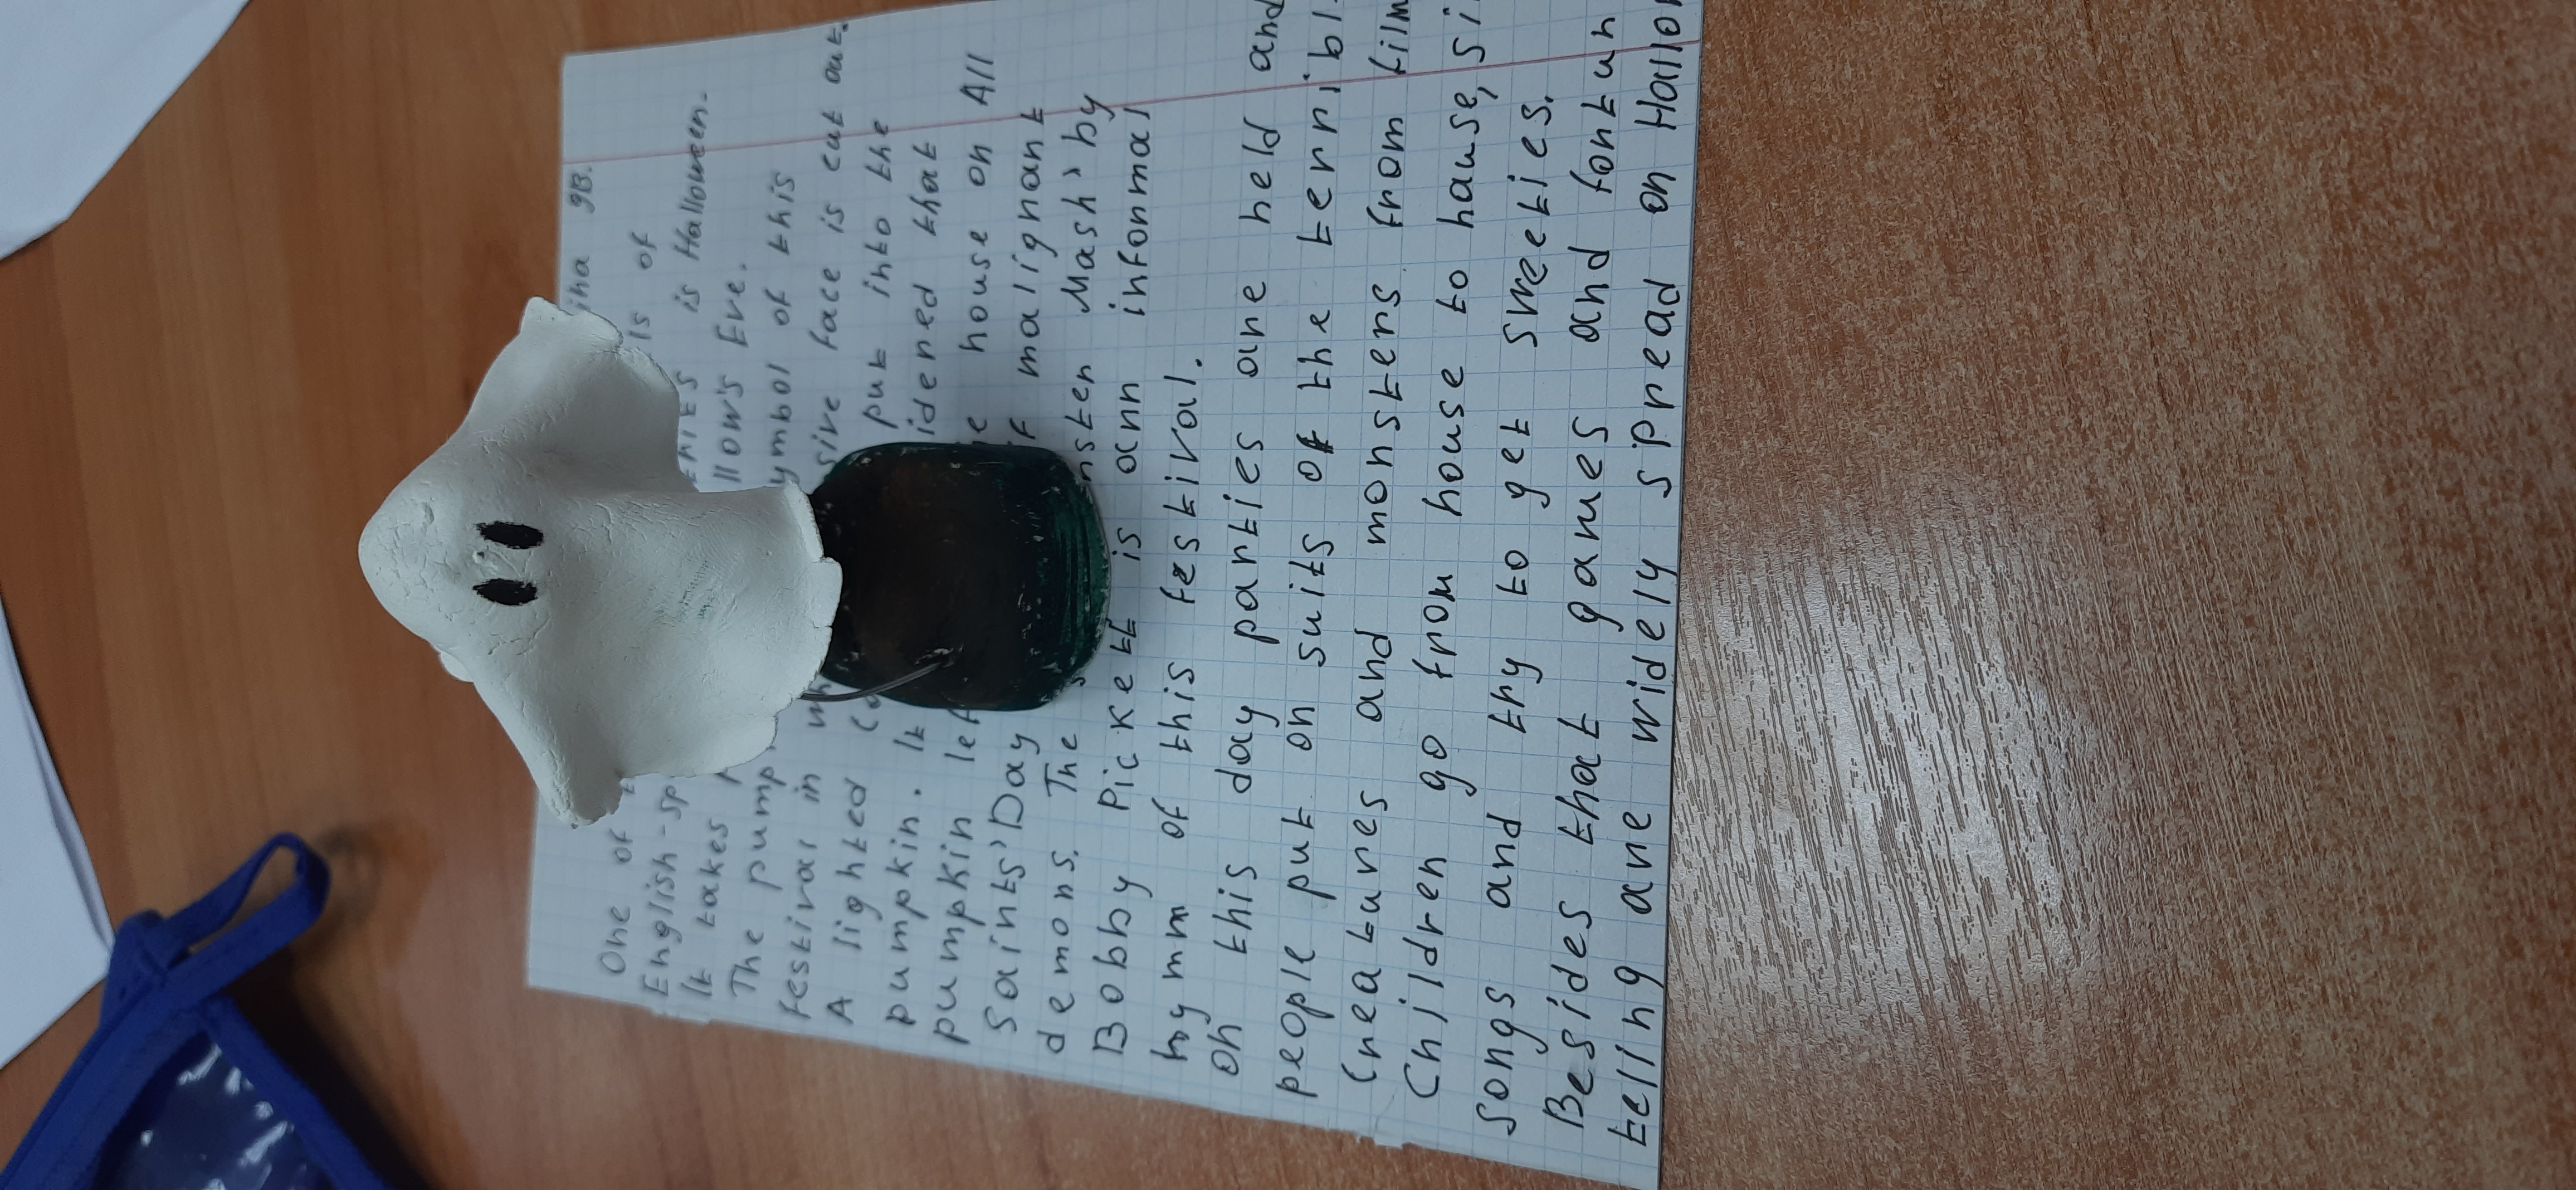 9В.
One of is of
English-sp is Halloween.
It takes llow's Eve.
The pump ymbol of this
festival in sive face is cut out.
A lighted put into the
pumpkin. It idened that
pumpkin lef house on All
Saints' Day of malignant
demons. The nsten Mash' by
Bobby Pickett is ann informal
hymn of this festival.
On this day parties are held and
people put on suits of the terribl
creatures and monsters from film
Children go from house to hause, si
songs and try to get sweeties.
Besides that games and fortun
telling are widely spread on Hallo